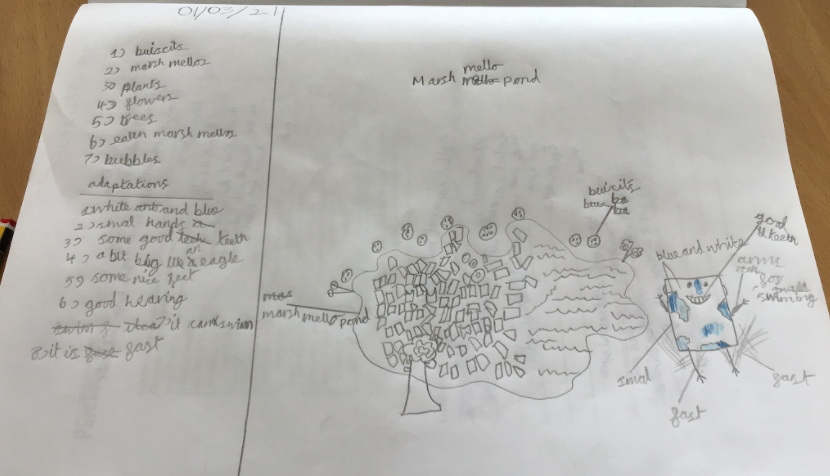 01/03/21
1) buiscits
2) marsh mellos
3) plants
4) flowers
5) trees
6) eaten marsh mellos
7) bubbles
adaptations
1 white and blue
2) smal hands
3) some good teeth
4) a bit big like an eagle
5) some nice feet
6) good hearing
7) it can swim
8) it is fast
Marsh mello pond
buiscits
marsh mello pond
blue and white
good teeth
for
swimming
smal
fast
fast